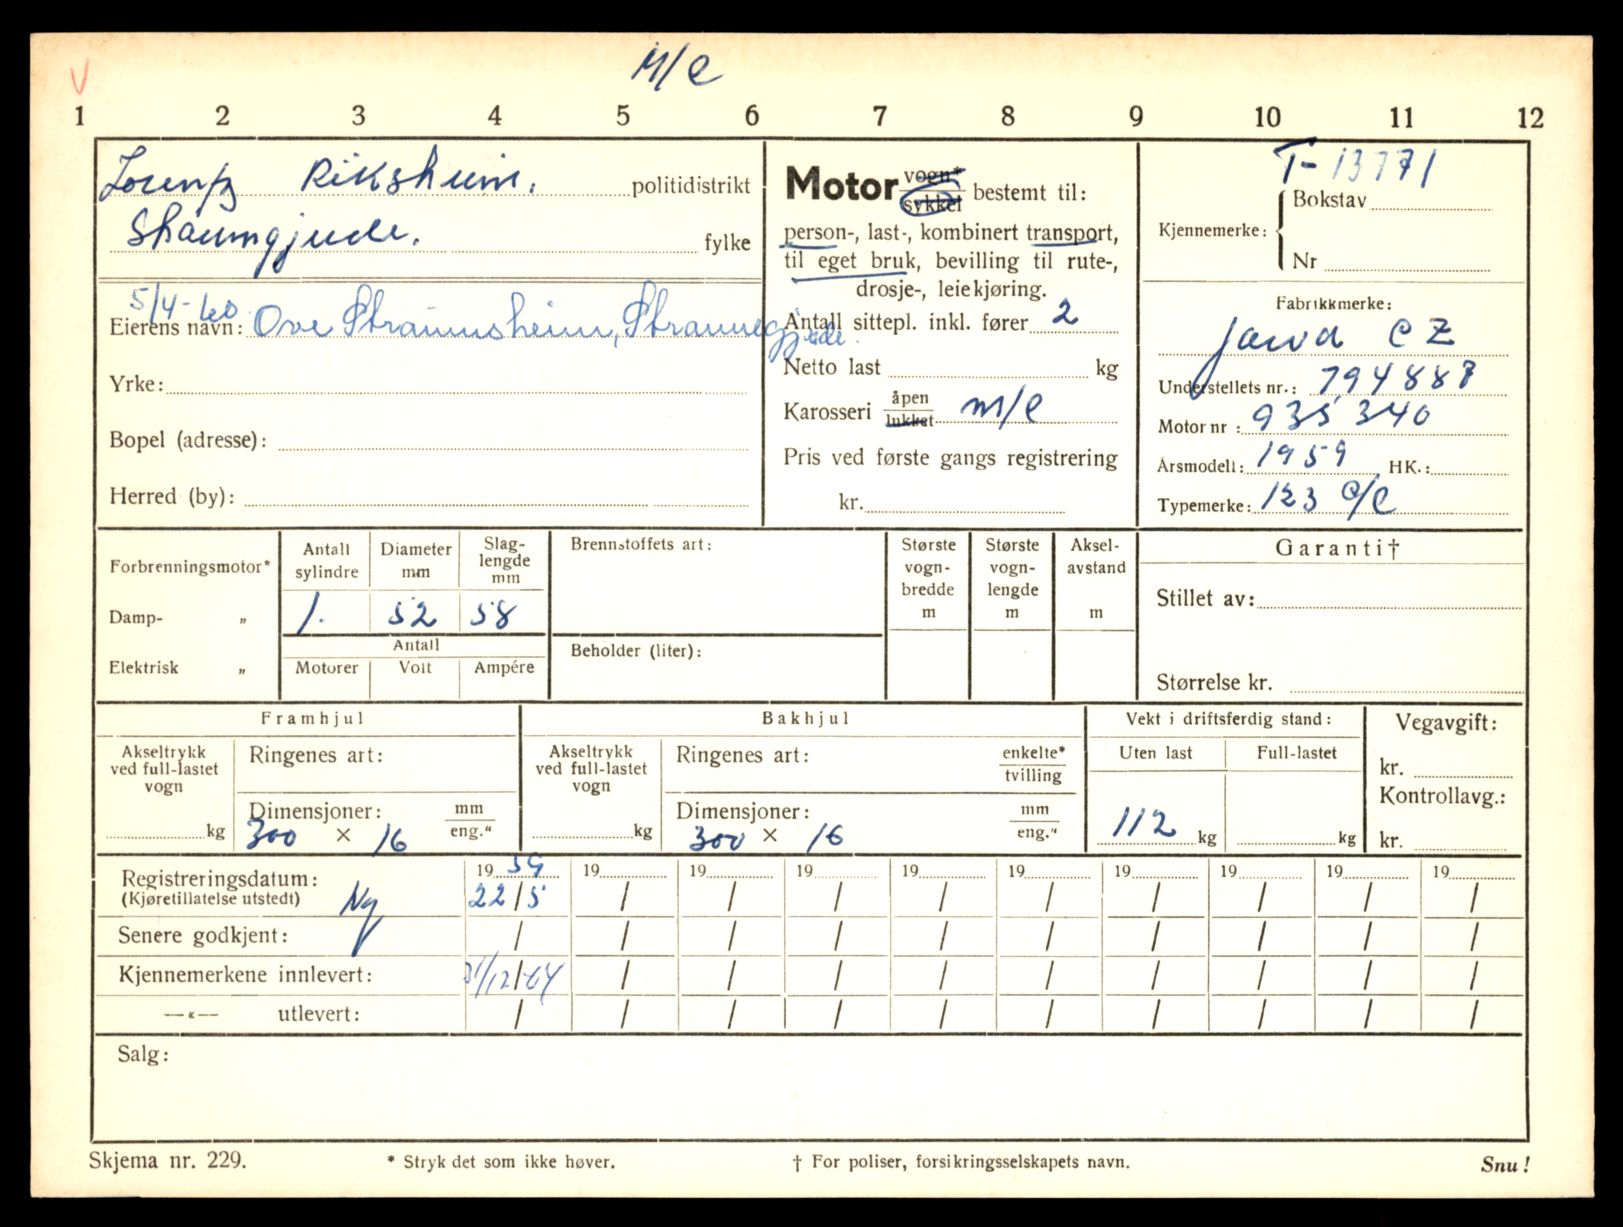 V
M/C
1 2 3 4 5 6 7 8 9 10 11 12
Lorentz Riksheim. politidistrikt
Straumgjerde. fylke
5/4-60
Eierens navn: Ove Straumsheim, Straumgjerde.
Yrke:
Bopel (adresse):
Herred (by):
Motor vogn* sykkel bestemt til:
person-, last-, kombinert transport,
til eget bruk, bevilling til rute-,
drosje-, leiekjøring.
Antall sittepl. inkl. fører 2
Netto last kg
Karosseri åpen lukket m/c
Pris ved første gangs registrering
kr.
T-13771
Kjennemerke: Bokstav
Nr
Fabrikkmerke:
Jawa CZ
Understellets nr.: 794887
Motor nr: 935340
Årsmodell: 1959 HK.:
Typemerke: 123 C/C
Forbrenningsmotor*
Damp- „
Elektrisk „
Antall sylindre Diameter mm Slag-lengde mm
1. 52 58
Antall
Motorer Volt Ampére
Brennstoffets art:
Beholder (liter):
Største vogn-bredde m
Største vogn-lengde m
Aksel-avstand m
Garanti†
Stillet av:
Størrelse kr.
Framhjul
Akseltrykk ved full-lastet vogn
kg
Ringenes art:
Dimensjoner: mm eng."
300 × 16
Bakhjul
Akseltrykk ved full-lastet vogn
kg
Ringenes art: enkelte* tvilling
Dimensjoner: mm eng."
300 × 16
Vekt i driftsferdig stand:
Uten last Full-lastet
112 kg kg
Vegavgift:
kr.
Kontrollavg.:
kr.
19 59 19 19 19 19 19 19 19 19 19
Registreringsdatum: 22/5 / / / / / / / / /
(Kjøretillatelse utstedt) Ny
Senere godkjent: / / / / / / / / / /
Kjennemerkene innlevert: 31/12/64 / / / / / / / / /
—«— utlevert: / / / / / / / / / /
Salg:
Skjema nr. 229. * Stryk det som ikke høver. † For poliser, forsikringsselskapets navn. Snu!